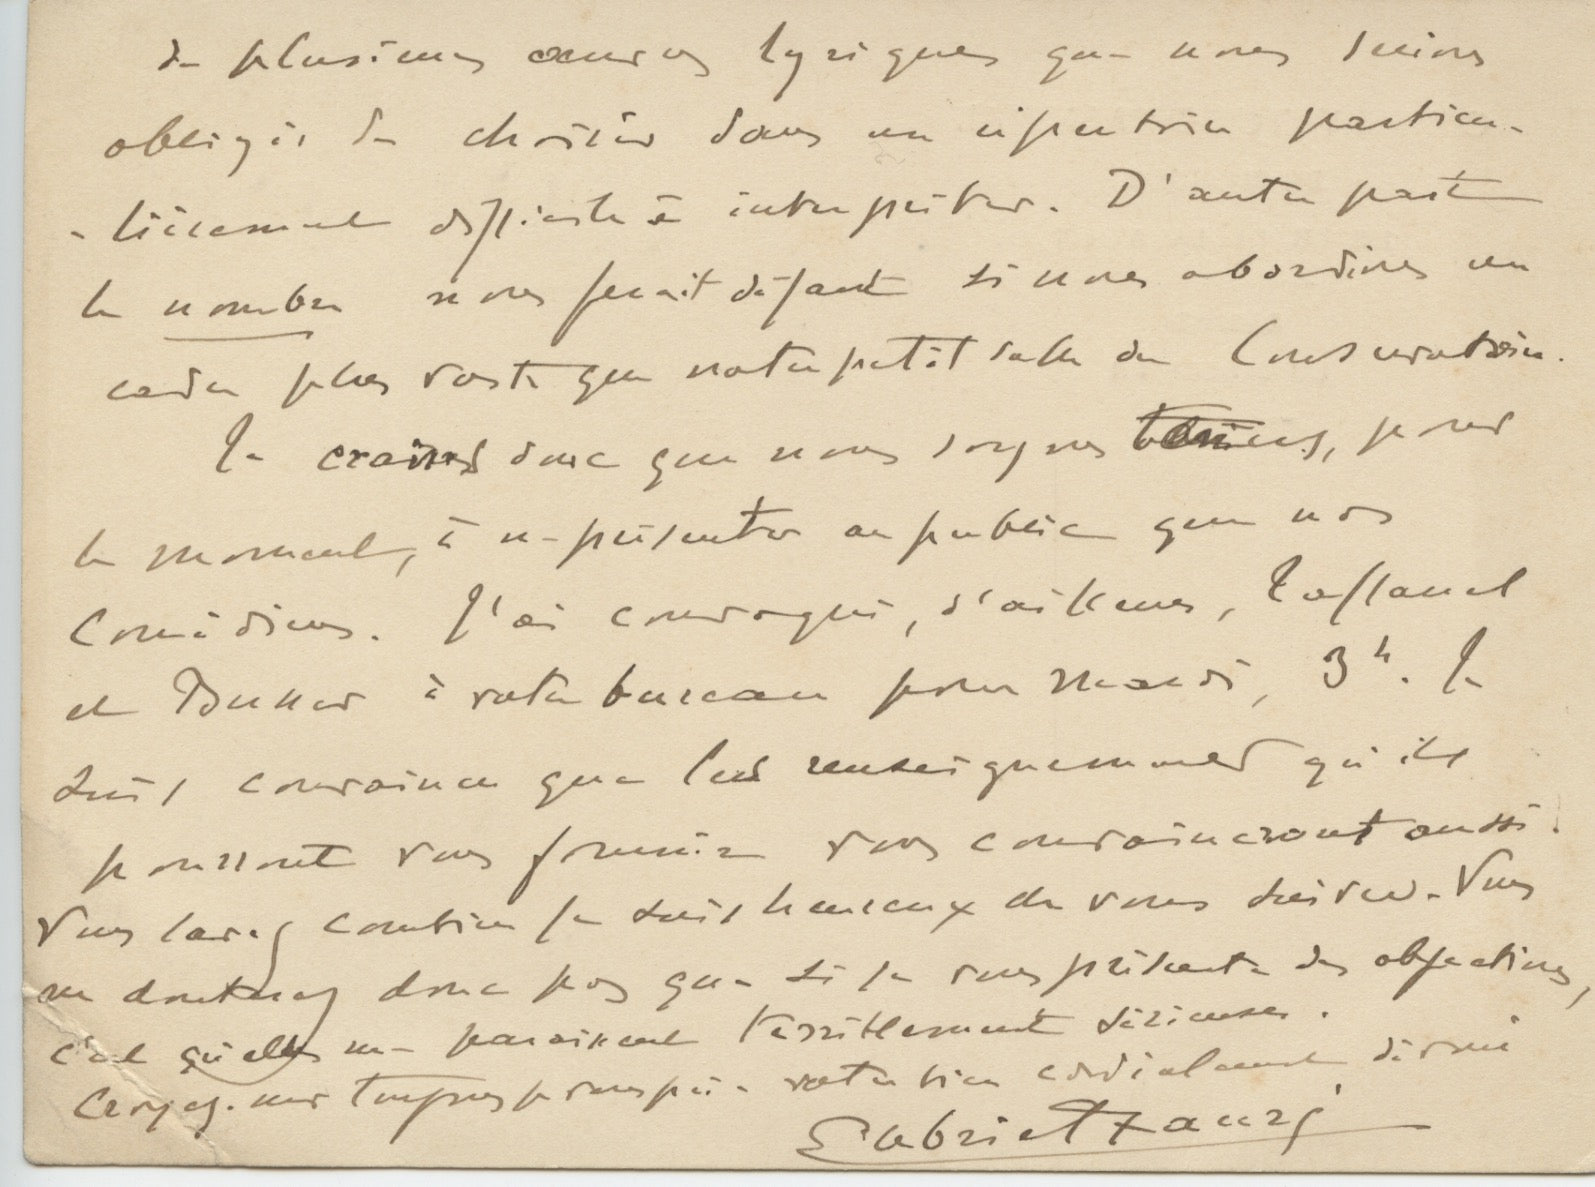 de plusieurs œuvres lyriques que nous serions
obligés de choisir dans un répertoire particu-
-lièrement difficile à interpréter. D'autre part
le nombre nous ferait défaut si nous abordions un
cadre plus vaste que notre petite salle du Conservatoire.
Je crains donc que nous soyons tenus, pour
le moment, à ne présenter au public que nos
Comédiens. J'ai convoqué, d'ailleurs, Taffanel
et Brunel à votre bureau pour Mardi, 3h. Je
suis convaincu que les renseignements qu'ils
pourront vous fournir vous convaincront aussi.
Vous savez combien je suis heureux de vous suivre. Vous
ne douterez donc pas que si je vous présente des objections,
c'est qu'elles me paraissent terriblement sérieuses.
Croyez-moi toujours je vous prie votre bien cordialement dévoué
Gabriel Fauré